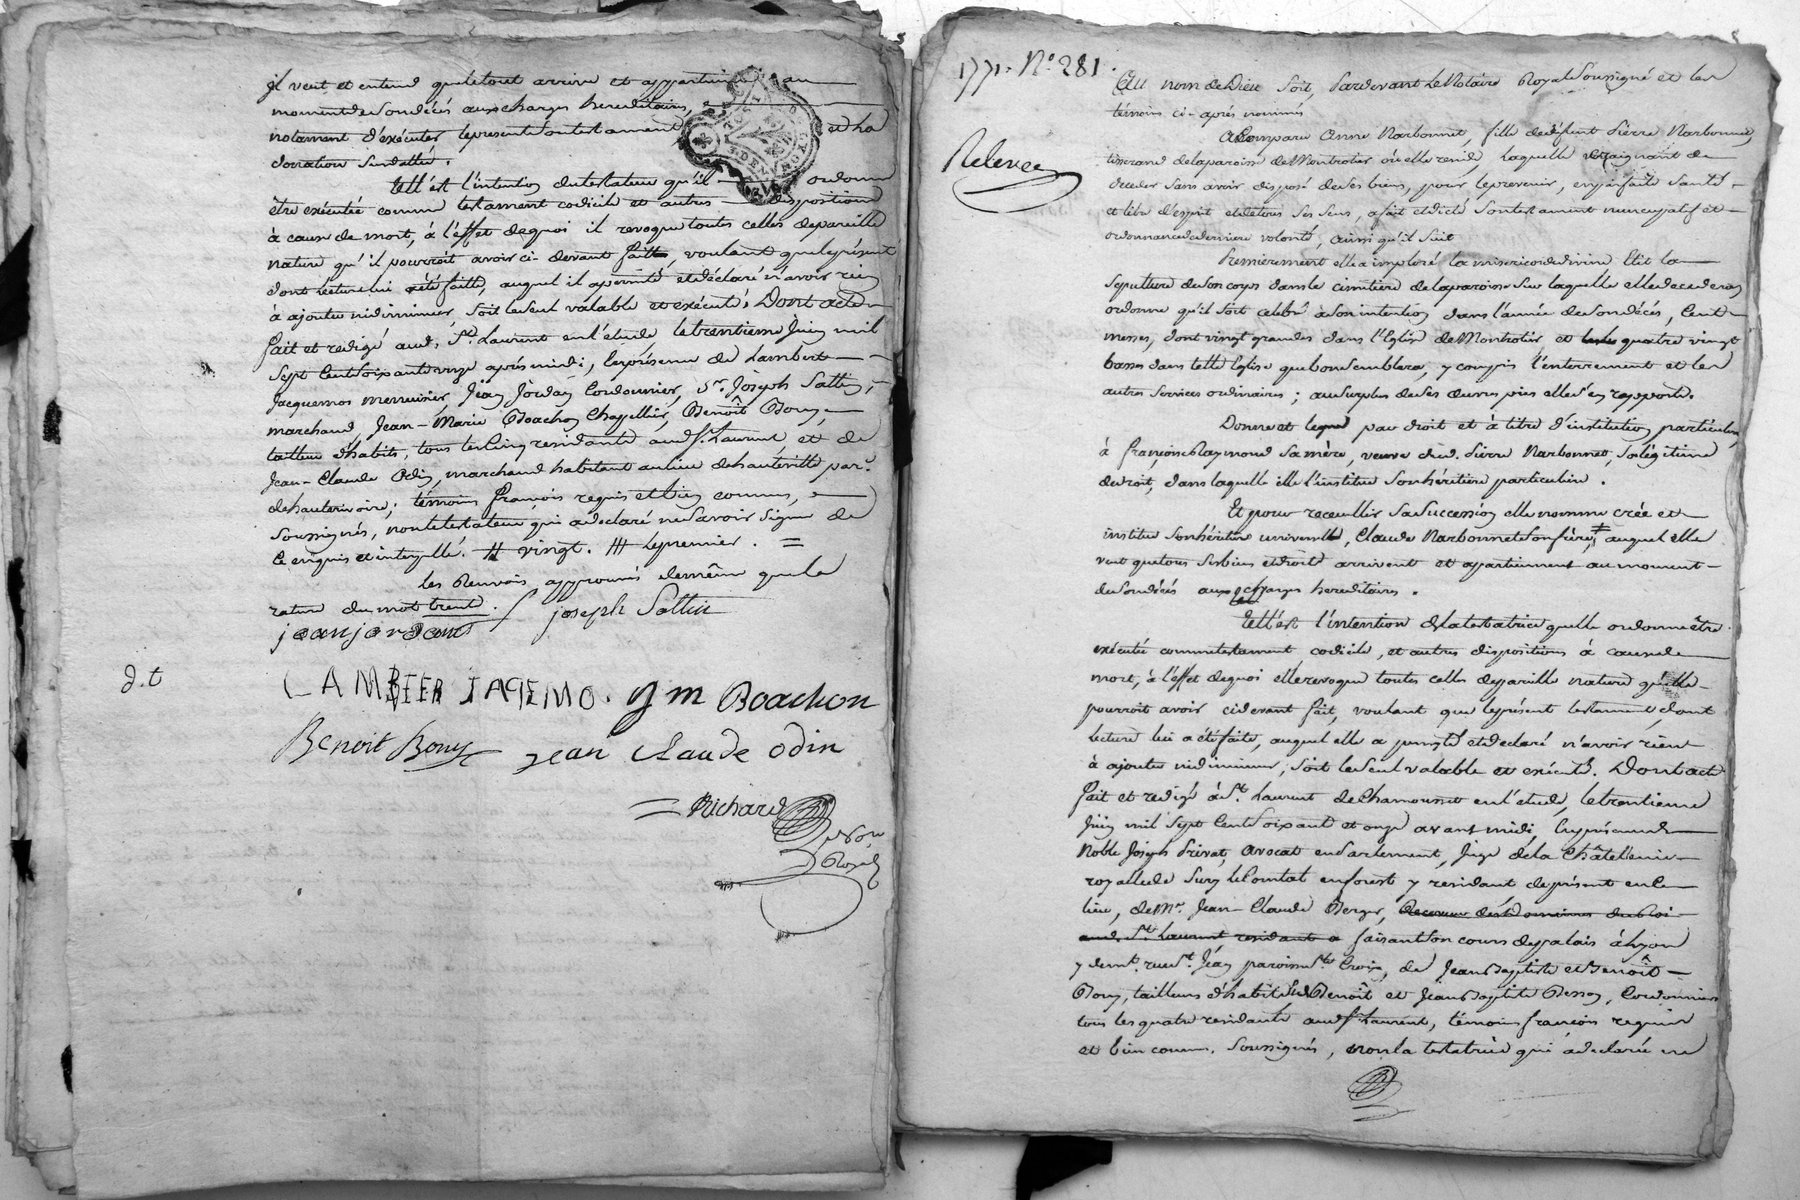 il veut et entend que le tout arrive et appartienne au
moment de son décés aux charges hereditaires, e
notament d'exécuter le present son testament et sa
donation susdattée.
Tell'est l'intention du testateur qu'il ordonne
être exécutée comme testament codicile et autres dispositions
à cause de mort, à l'effet de quoi il revoque toutes celles de pareille
nature qu'il pourroit avoir ci devant faitte, voulant que le présent
dont lecture lui a été faitte, auquel il a persisté et déclaré n'avoir rien
à ajouter ni diminuer, soit le seul valable et exécuté. Dont acte
fait et redigé aud. St. Laurent en l'étude, le trentieme juin mil
sept cent soixante onze après midi, en présence de Lambert
Jacquemos menuisier, Jean Jordan Cordonnier, Sr. Joseph Sattin,
marchand, Jean-Marie Boachon Chappellier, Benoît Bony
tailleur d'habits, tous les cinq residants aud. St. Laurent et de
Jean-Claude Odin, marchand habitant au lieu de hauteville par.
de hauterivoire; témoins françois requis et bien connus, e
soussignés, non le testateur qui a declaré ne savoir signer de
ce enquis et interpellé. # vingt. ## le premier. =
les renvois approuvés de même que la
rature du mot trent.
jean jordant joseph Sattin
d.t
LAMBEER JAQEMO. J m Boachon
Benoit Bony jean Claude odin
= Richard
not.
Royal
1771. N° 281.
Au nom de Dieu soit, Pardevant le Notaire Royal soussigné et les
témoins ci-après nommés
Relevee
A Comparu Anne Narbonnet, fille de défunt Pierre Narbonnet,
tisserand de la paroisse de Montrotier où elle reside, laquelle craignant de
deceder sans avoir disposé de ses biens, pour le prevenir, en parfaite santé
et libre d'esprit et de tous ses sens, a fait et dicté son testament nuncupatif et
ordonnance de derniere volonté, ainsi qu'il suit
Premierement elle a imploré la misericorde divine Elit la
sepulture de son corps dans le cimetière de la paroisse sur laquelle elle decedera
ordonne qu'il soit celebré à son intention dans l'année de son décés, Cent
messes, dont vingt grandes dans l'Eglise de Montrotier et quatre vingt
basses dans telle Eglise que bon semblera, y compris l'enterrement et les
autres services ordinaires; au surplus de ses œuvres pies elle s'en rapporte.
Donne et legue par droit et à titre d'institution particuliere,
à françoise Raymond sa mère, veuve dud. Pierre Narbonnet, sa légitime
de droit, dans laquelle elle l'institue son héritière particuliere.
Et pour receuillir sa succession elle nomme crée et
institue son héritier universel, Claude Narbonnet son frère, # auquel elle
veut que tous ses biens et droits arrivent et apartiennent au moment
de son décés aux charges hereditaires.
Tell'est l'intention de la testatrice qu'elle ordonne être
exécutée comme testament codicile, et autres dispositions à cause de
mort, à l'effet de quoi elle revoque toutes celles de pareille nature qu'elle
pourroit avoir cidevant fait, voulant que le présent testament, dont
lecture lui a été faite, auquel elle a persisté et declaré n'avoir rient
à ajouter ni diminuer, soit le seul valable et exécuté. Dont acte
fait et redigé à St. Laurent de Chamousset en l'étude, le trentieme
juin mil sept cent soixante et onze avant midi, en présence de
Noble Joseph Privat, avocat en Parlement, juge de la Châtellenie
royalle de Sury le Comtal en forest y residant de présent en ce
lieu, de Mr. Jean-Claude Berger, Receveur des Domaines du Roi
aud. St. Laurent residant a faisant son cours de palais à Lyon
y demt. rue St. Jean paroisse Ste. Croix, de Jean Baptiste et Benoît
Bony, tailleurs d'habits, de Benoît et Jean Baptiste Besson, Cordonniers
tous les quatre residants aud. St. Laurent, témoins françois requis
et bien connus, soussignés, non la testatrice qui a declaré ne